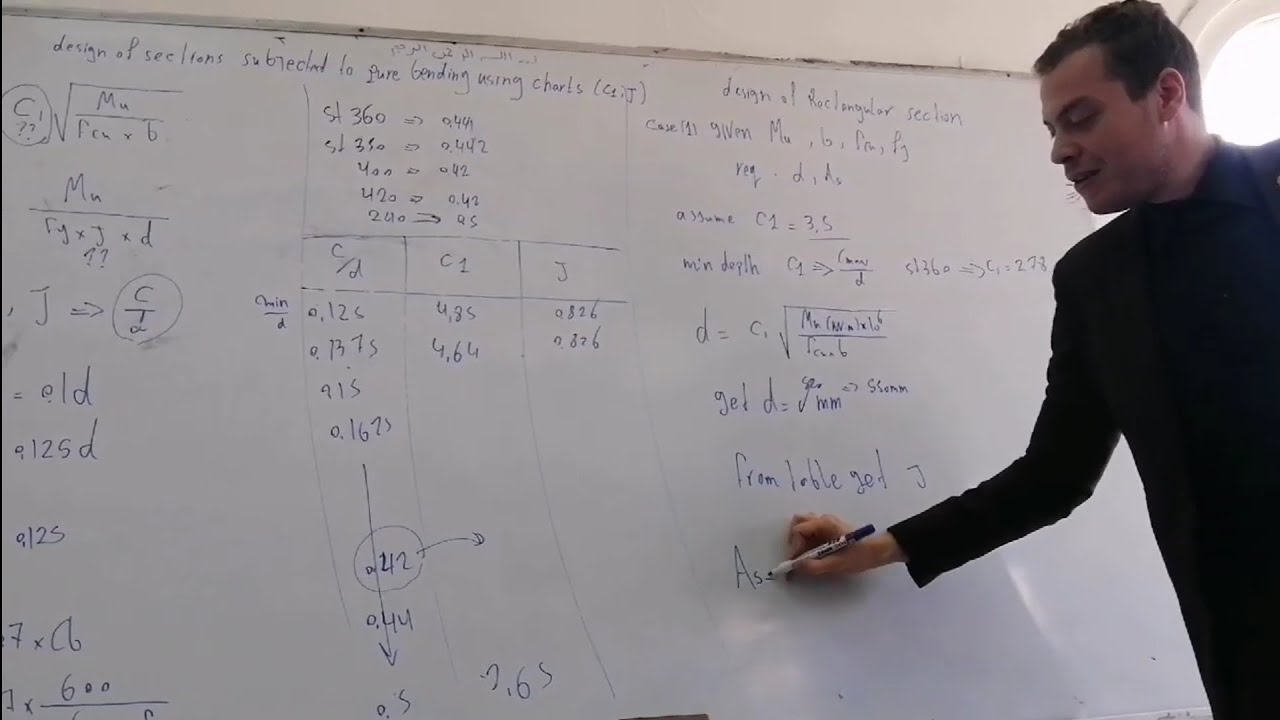 design of sections subjected to pure bending using charts (C1,J)
C1 √ Mu / Fcu × b
??
Mu / Fy × J × d
??
, J => C/d
= 0.1d
0.125d
0.125
.7 × Cb
7 × 600
st 360 => 0.44
st 350 => 0.442
400 => 0.42
420 => 0.42
240 => 0.5
C/d C1 J
Cmin/d 0.125 4,85 0.826
0.1375 4,64 0.826
0.15
0.1625
0.42
0.44
0.5 2,65
design of Rectangular section
Case(1) given Mu, b, Fcu, Fy
req. d, As
assume C1 = 3,5
min depth C1 => Cmax/d st360 => C1 = 2.78
d = C1 √ Mu (kN.m) × 10^6 / Fcu × b
get d = mm => 550mm
from table get J
As =